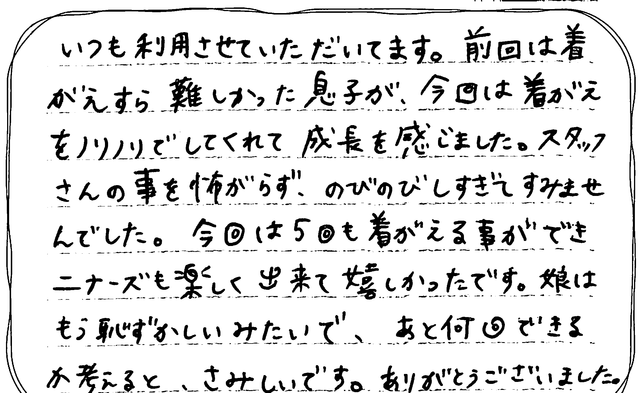 いつも利用させていただいてます。前回は着
がえすら難しかった息子が、今回は着がえ
をノリノリでしてくれて成長を感じました。スタッフ
さんの事を怖がらず、のびのびしすぎてすみませ
んでした。今回は5回も着がえる事ができ
ニナーズも楽しく出来て嬉しかったです。娘は
もう恥ずかしいみたいで、あと何回できる
か考えると、さみしいです。ありがとうございました。